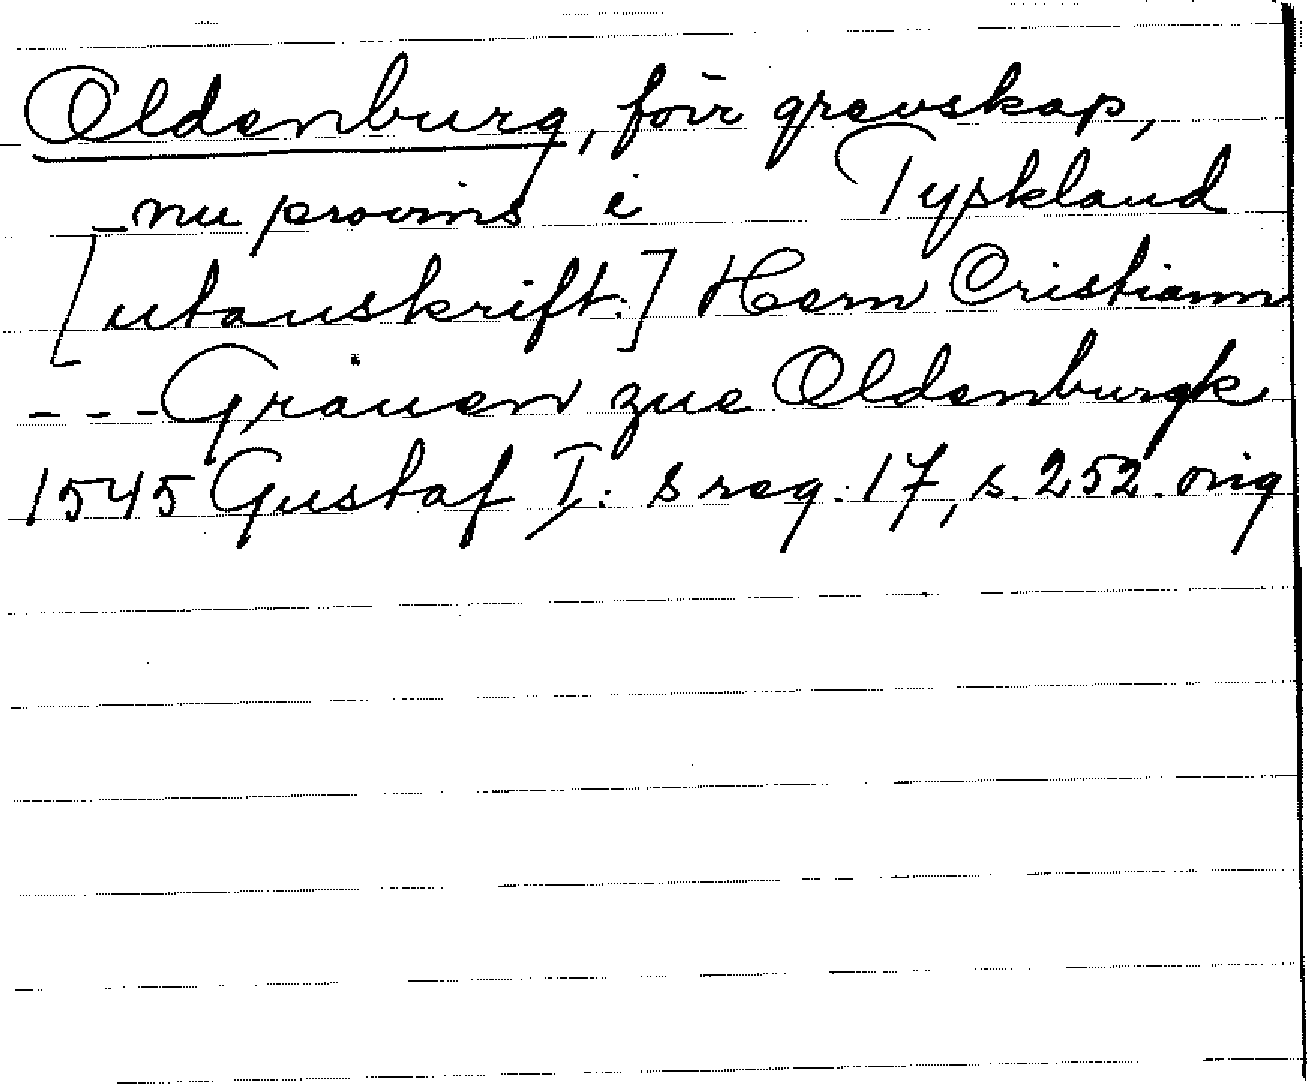 Oldenburg, förr grevskap,
nu provins i Tyskland
[utanskrift:] Hern Cristiann
---Gräuen zue Oldenburgk
1545 Gustaf I:s reg. 17, s. 252. orig